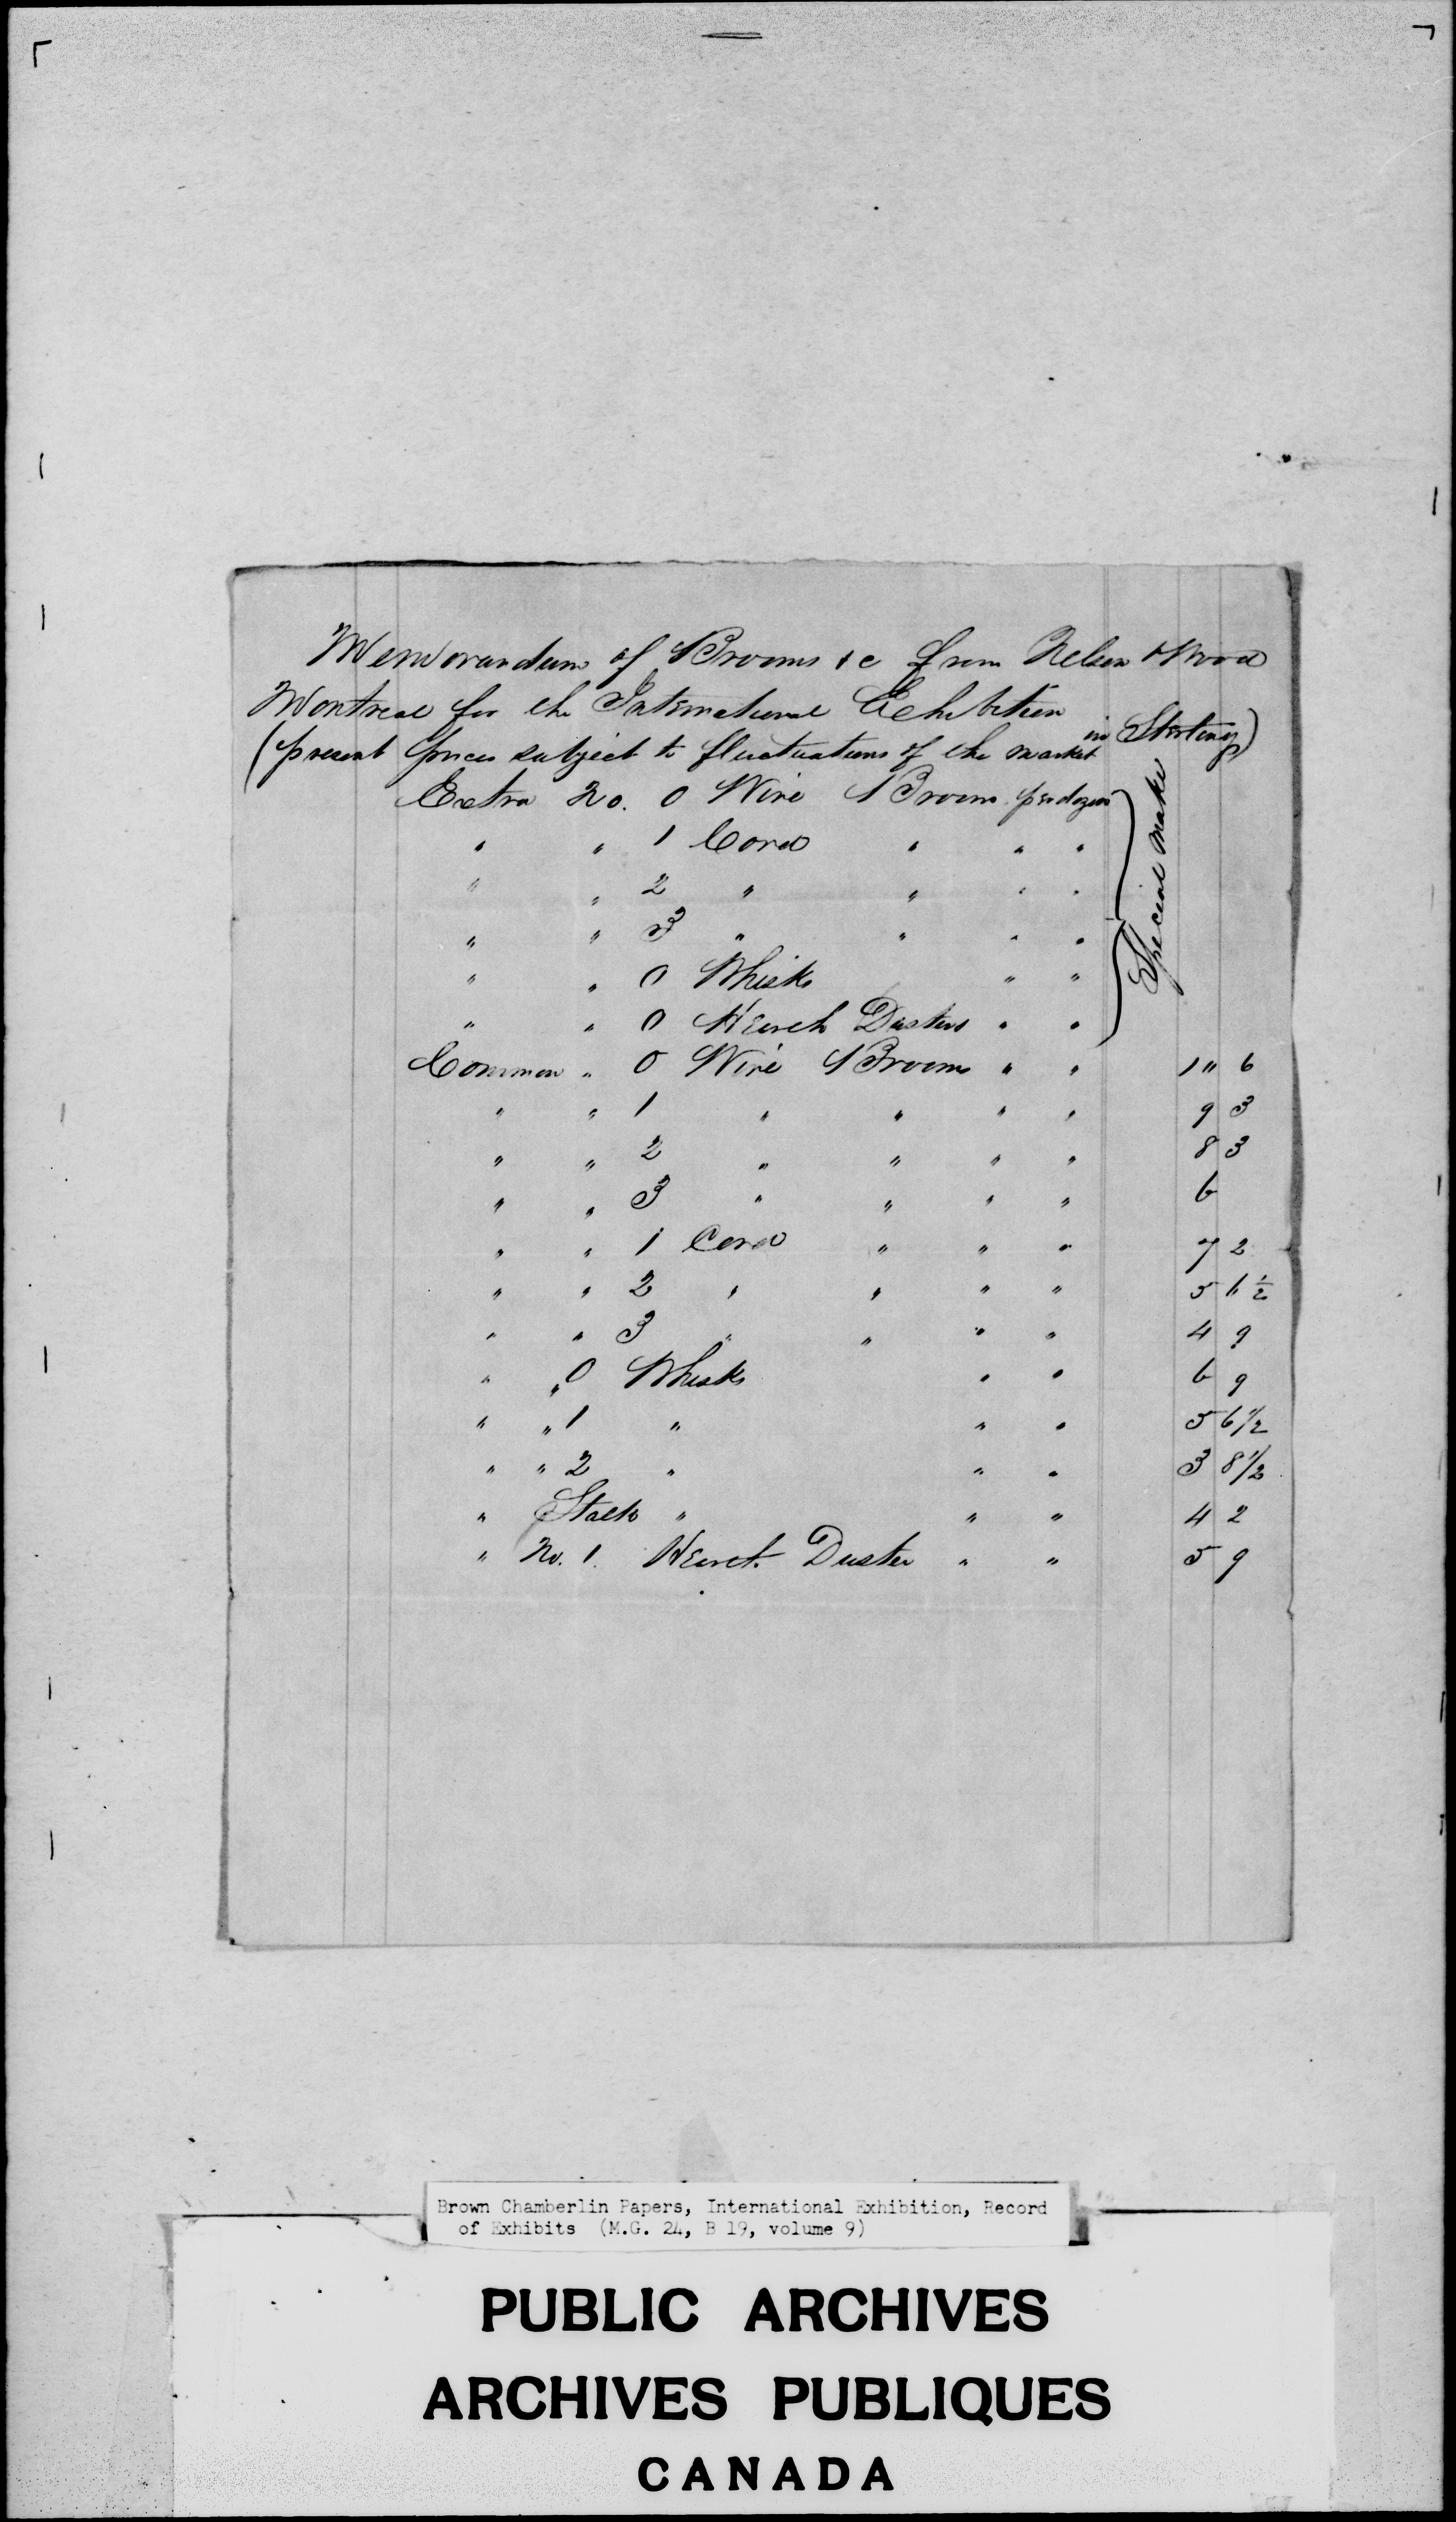 Memorandum of Brooms &c from Nelson & Wood
Montreal for the International Exhibition
(present prices subject to fluctuations of the market in Sterling)
Extra No. 0 Wire Broom per dozen
" " 1 Cord " " "
" " 2 " " " "
" " 3 " " " "
" " 0 Whisks " "
" " 0 Hearth Dusters " "
Special make
Common " 0 Wire Brooms " " 1 " 6
" " 1 " " " " 9 3
" " 2 " " " " 8 3
" " 3 " " " " 6
" " 1 Cord " " " 7 2
" " 2 " " " " 5 1 1/2
" " 3 " " " " 4 9
" " 0 Whisks " " 6 9
" " 1 " " " 5 6 1/2
" " 2 " " " 3 8 1/2
" Stalk " " " 4 2
" No. 1. Hearth Duster " " 5 9
Brown Chamberlin Papers, International Exhibition, Record
of Exhibits (M.G. 24, B 19, volume 9)
PUBLIC ARCHIVES
ARCHIVES PUBLIQUES
CANADA